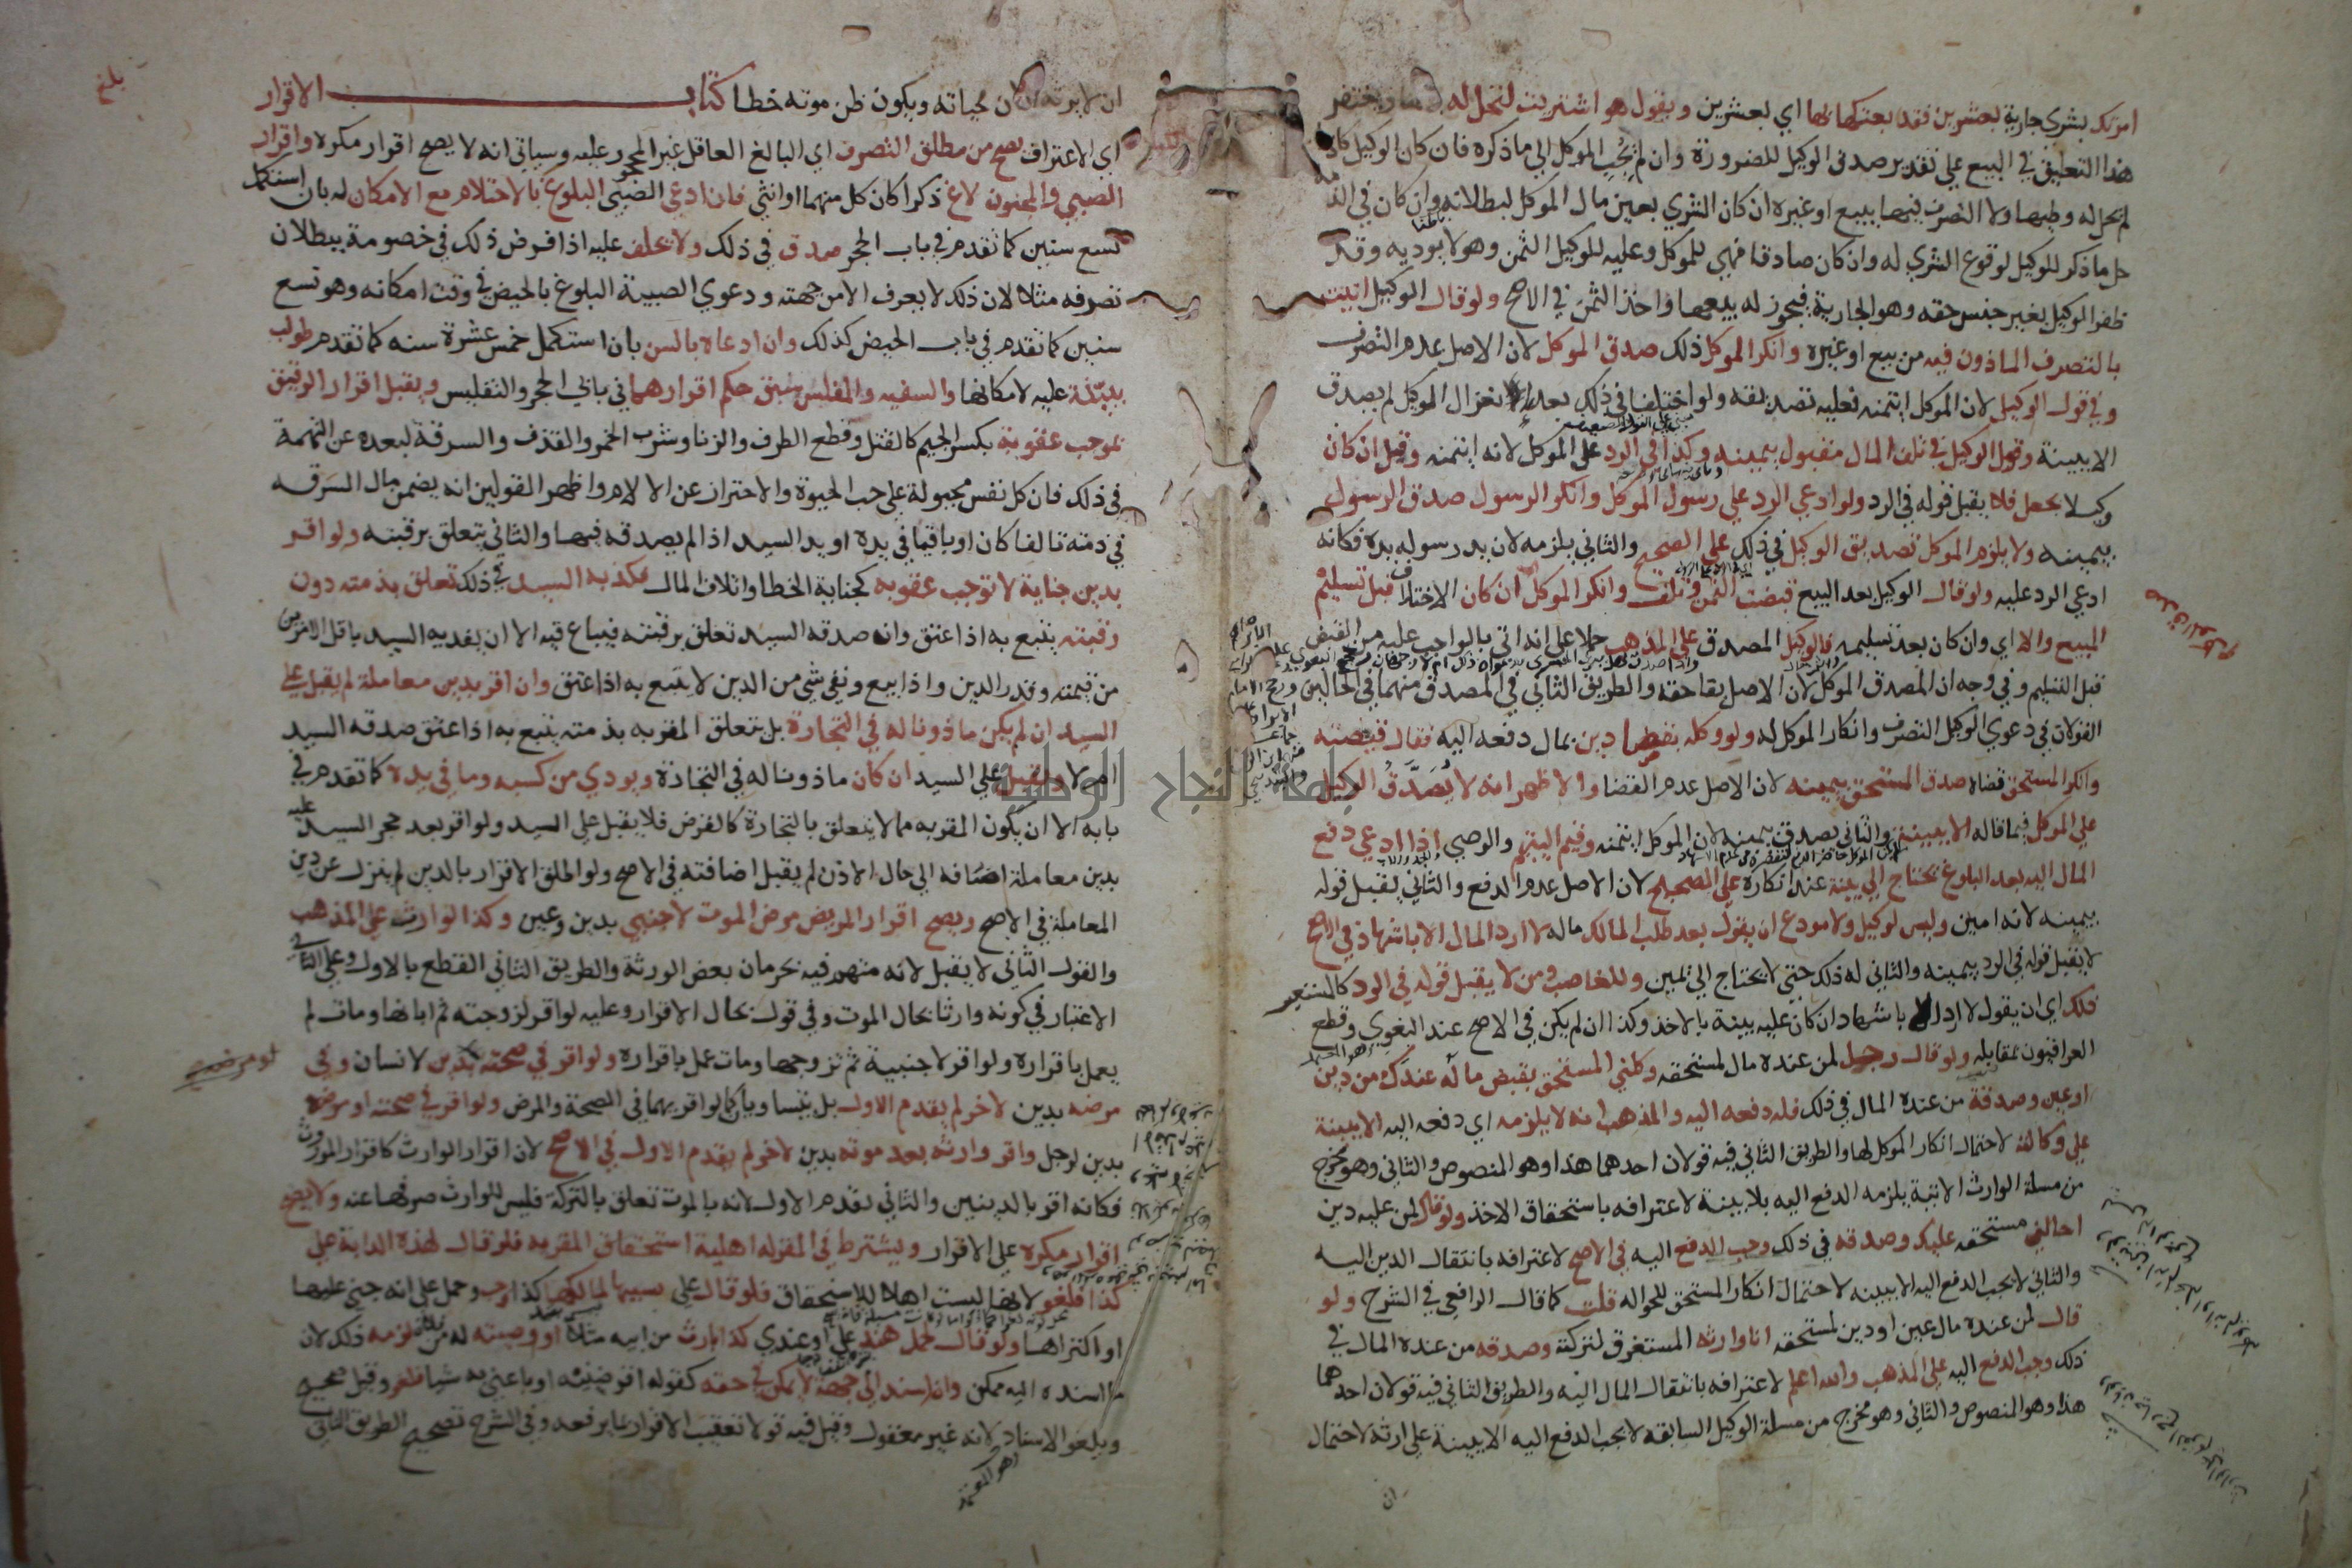 امرتك بشري جارية بعشرين فقد بعتكها بها اي بعشرين ويقول هو اشتريت لتحل له ويغتفر
هذا التعليق في البيع علي تقدير صدق الوكيل للضرورة وان لم يجب الموكل الي ما ذكره فان كان الوكيل كاذبا
لم يحل له وطيها ولا التصرف فيها ببيع او غيره ان كان الشري بعين مال الموكل لبطلانه وان كان في الذمة
حل ما ذكر للوكيل لوقوع الشري له وان كان صادقا فهي للموكل وعليه للوكيل الثمن وهو لا يوديه وقد
ظفر الوكيل بغير جنس حقه وهو الجارية فيجوز له بيعها واخذ الثمن في الاصح ولو قال الوكيل اتيت
بالتصرف الماذون فيه من بيع او غيره وانكر الموكل ذلك صدق الموكل لان الاصل عدم التصرف
وفي قول الوكيل لان الموكل ايتمنه فعليه تصديقه ولو اختلفا في ذلك بعد انعزال الوكيل لم يصدق
الا ببينة وقول الوكيل في تلف المال مقبول بيمينه وكذا في الرد علي الموكل لانه ايتمنه وقيل ان كان
وكيلا بجعل فلا يقبل قوله في الرد ولو ادعي الرد علي رسول الموكل وانكر الرسول صدق الرسول
بيمينه ولا يلزم الموكل تصديق الوكيل في ذلك علي الصحيح والثاني يلزمه لان يد رسوله يده فكانه
ادعي الرد عليه ولو قال الوكيل بعد البيع قبضت الثمن وتلف وانكر الموكل ان كان الاختلاف قبل تسليم
المبيع والا اي وان كان بعد تسليمه فالوكيل المصدق علي المذهب حملا علي انه اتي بالواجب عليه من القبض
قبل التسليم وفي وجه ان المصدق الموكل لان الاصل بقا حقه والطريق الثاني في المصدق منهما في الحالين
القولان في دعوي الوكيل التصرف وانكار الموكل له ولو وكله بقضا دين بمال دفعه اليه فقال قضيته
وانكر المستحق قضاه صدق المستحق بيمينه لان الاصل عدم القضا والاظهر انه لا يصدق الوكيل
علي الموكل فيما قاله الا ببينة والثاني يصدق بيمينه لان الموكل ايتمنه وقيم اليتيم والوصي اذا ادعي دفع
المال اليه بعد البلوغ يحتاج الي بينة عند انكاره علي الصحيح لان الاصل عدم الدفع والثاني يقبل قوله
بيمينه لانه امين وليس لوكيل ولا مودع ان يقول بعد طلب المالك ماله لا ارد المال الا باشهاد في الاصح
لا يقبل قوله في الرد بيمينه والثاني له ذلك حتي لا يحتاج الي يمين وللغاصب ومن لا يقبل قوله في الرد كالمستعير
ذلك اي ان يقول لا ارد الا باشهاد ان كان عليه بينة بالاخذ وكذا ان لم يكن في الاصح عند البغوي وقطع
العراقيون بمقابله ولو قال رجل لمن عنده مال لمستحقه وكلني المستحق بقبض ما له عندك من دين
او عين وصدقه من عنده المال في ذلك فله دفعه اليه والمذهب انه لا يلزمه اي دفعه اليه الا ببينة
علي وكالته لاحتمال انكار الموكل لها والطريق الثاني فيه قولان احدهما هذا وهو المنصوص والثاني وهو مخرج
من مسلة الوارث الاتية يلزمه الدفع اليه بلا بينة لاعترافه باستحقاق الاخذ ولو قال لمن عليه دين
احالني مستحقه عليك وصدقه في ذلك وجب الدفع اليه في الاصح لاعترافه بانتقال الدين اليه
والثاني لا يجب الدفع اليه الا ببينه لاحتمال انكار المستحق للحواله قلت كما قال الرافعي في الشرح ولو
قال لمن عنده مال عين او دين لمستحقه انا وارثه المستغرق لتركته وصدقه من عنده المال في
ذلك وجب الدفع اليه علي المذهب والله اعلم لاعترافه بانتقال المال اليه والطريق الثاني فيه قولان احدهما
هذا وهو المنصوص والثاني وهو مخرج من مسلة الوكيل السابقه لا يجب الدفع اليه الا ببينة علي ارثه لاحتمال
ان
بلغ
ان لا يرثه الان لحياته ويكون ظن موته خطا كتاب الاقرار
اي الاعتراف يصح من مطلق التصرف اي البالغ العاقل غير المحجور عليه وسياتي انه لا يصح اقرار مكره واقرار
الصبي والمجنون لاغ ذكرا كان كل منهما او انثي فان ادعي الصبي البلوغ بالاحتلام مع الامكان له بان استكمل
تسع سنين كما تقدم في باب الحجر صدق في ذلك ولا يحلف عليه اذا فرض ذلك في خصومة ببطلان
تصرفه مثلا لان ذلك لا يعرف الا من جهته ودعوي الصبية البلوغ بالحيض في وقت امكانه وهو تسع
سنين كما تقدم في باب الحيض كذلك وان ادعاه بالسن بان استكمل خمس عشرة سنه كما تقدم طولب
ببينة عليه لامكانها والسفيه والمفلس سبق حكم اقرارهما في بابي الحجر والتفليس ويقبل اقرار الرقيق
بموجب عقوبة بكسر الجيم كالقتل وقطع الطرف والزنا وشرب الخمر والقذف والسرقة لبعده عن التهمة
في ذلك فان كل نفس مجبولة علي حب الحيوة والاحتراز عن الالام واظهر القولين انه يضمن مال السرقه
في ذمته تالفا كان او باقيا في يده او يد السيد اذا لم يصدقه فيها والثاني يتعلق برقبته ولو اقر
بدين جناية لا توجب عقوبه كجناية الخطا واتلاف المال فكذبه السيد في ذلك تعلق بذمته دون
رقبته يتبع به اذا عتق وان صدقه السيد تعلق برقبته فيباع فيه الا ان يفديه السيد باقل الامرين
من قيمته وقدر الدين واذا بيع وبقي شي من الدين لا يتبع به اذا عتق وان اقر بدين معاملة لم يقبل علي
السيد ان لم يكن ماذونا له في التجارة بل يتعلق المقر به بذمته يتبع به اذا عتق صدقه السيد
ام لا ويقبل علي السيد ان كان ماذونا له في التجارة ويودي من كسبه وما في يده كما تقدم في
بابه الا ان يكون المقر به مما لا يتعلق بالتجارة كالقرض فلا يقبل علي السيد ولو اقر بعد حجر السيد عليه
بدين معاملة اضافه الي حال الاذن لم يقبل اضافته في الاصح ولو اطلق الاقرار بالدين لم ينزل عن دين
المعاملة في الاصح ويصح اقرار المريض مرض الموت لاجنبي بدين وعين وكذا الوارث علي المذهب
والقول الثاني لا يقبل لانه متهم فيه بحرمان بعض الورثة والطريق الثاني القطع بالاول وعلي الثاني
الاعتبار في كونه وارثا بحال الموت وفي قول بحال الاقرار وعليه لو اقر لزوجته ثم ابانها ومات لم
يعمل باقراره ولو اقر لاجنبية ثم تزوجها ومات عمل باقراره ولو اقر في صحته بدين لانسان وفي
مرضه بدين لاخر لم يقدم الاول بل يتساويان كما لو اقر بهما في الصحة والمرض ولو اقر في صحته او مرضه
بدين لرجل واقر وارثه بعد موته بدين لاخر لم يقدم الاول في الاصح لان اقرار الوارث كاقرار الموروث
فكانه اقر بالدينين والثاني يقدم الاول لانه بالموت تعلق بالتركة فليس للوارث صرفها عنه ولا يصح
اقرار مكره علي الاقرار ويشترط في المقر له اهلية استحقاق المقر به فلو قال لهذه الدابة علي
كذا فلغو لانها ليست اهلا للاستحقاق فلو قال علي بسببها لمالكها كذا وجب وحمل علي انه جني عليها
او اكتراها ولو قال لحمل هند علي او عندي كذا بارث من ابيه مثلا او وصيته له من فلان لزمه ذلك لان
ما اسنده اليه ممكن وان اسند الي جهة لا يمكن في حقه كقوله اقرضنيه او باعني به شيا فلغو وقيل صحيح
ويلغو الاسناد لانه غير معقول وقيل فيه قولا تعقيب الاقرار بما يرفعه وفي الشرح تصحيح الطريق الثاني
هو المعتمد
جامعة النجاح الوطنية